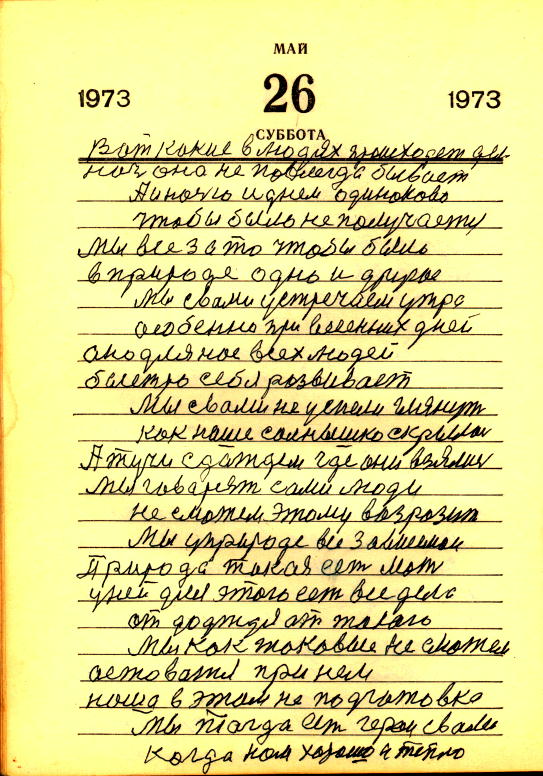 МАЙ
1973 26 1973
СУББОТА
Вот какие в людях происходет
нас она не повсегда бывает
А ночю и днем одиноково
чтобы было не получаету
Мы все за то чтобы было
в природе одно и другое
Мы свами устречаем утро
особенно при весенних дней
оно для нас всех людей
быстро себя розвивает
Мы свами не успели глянут
как наше солнышко скрылос
А тучи с даждем где они взялис
Мы говарят сами люди
не сможем этому возрозит
Мы уприроде все
Природа такая ест мат
уней для этого ест все дела
от дождя ат такого
Мы как таковые не сможем
остоватя при нем
наша в этом не подготовка
Мы тагда ест герои свами
когда нам хорошо и тепло